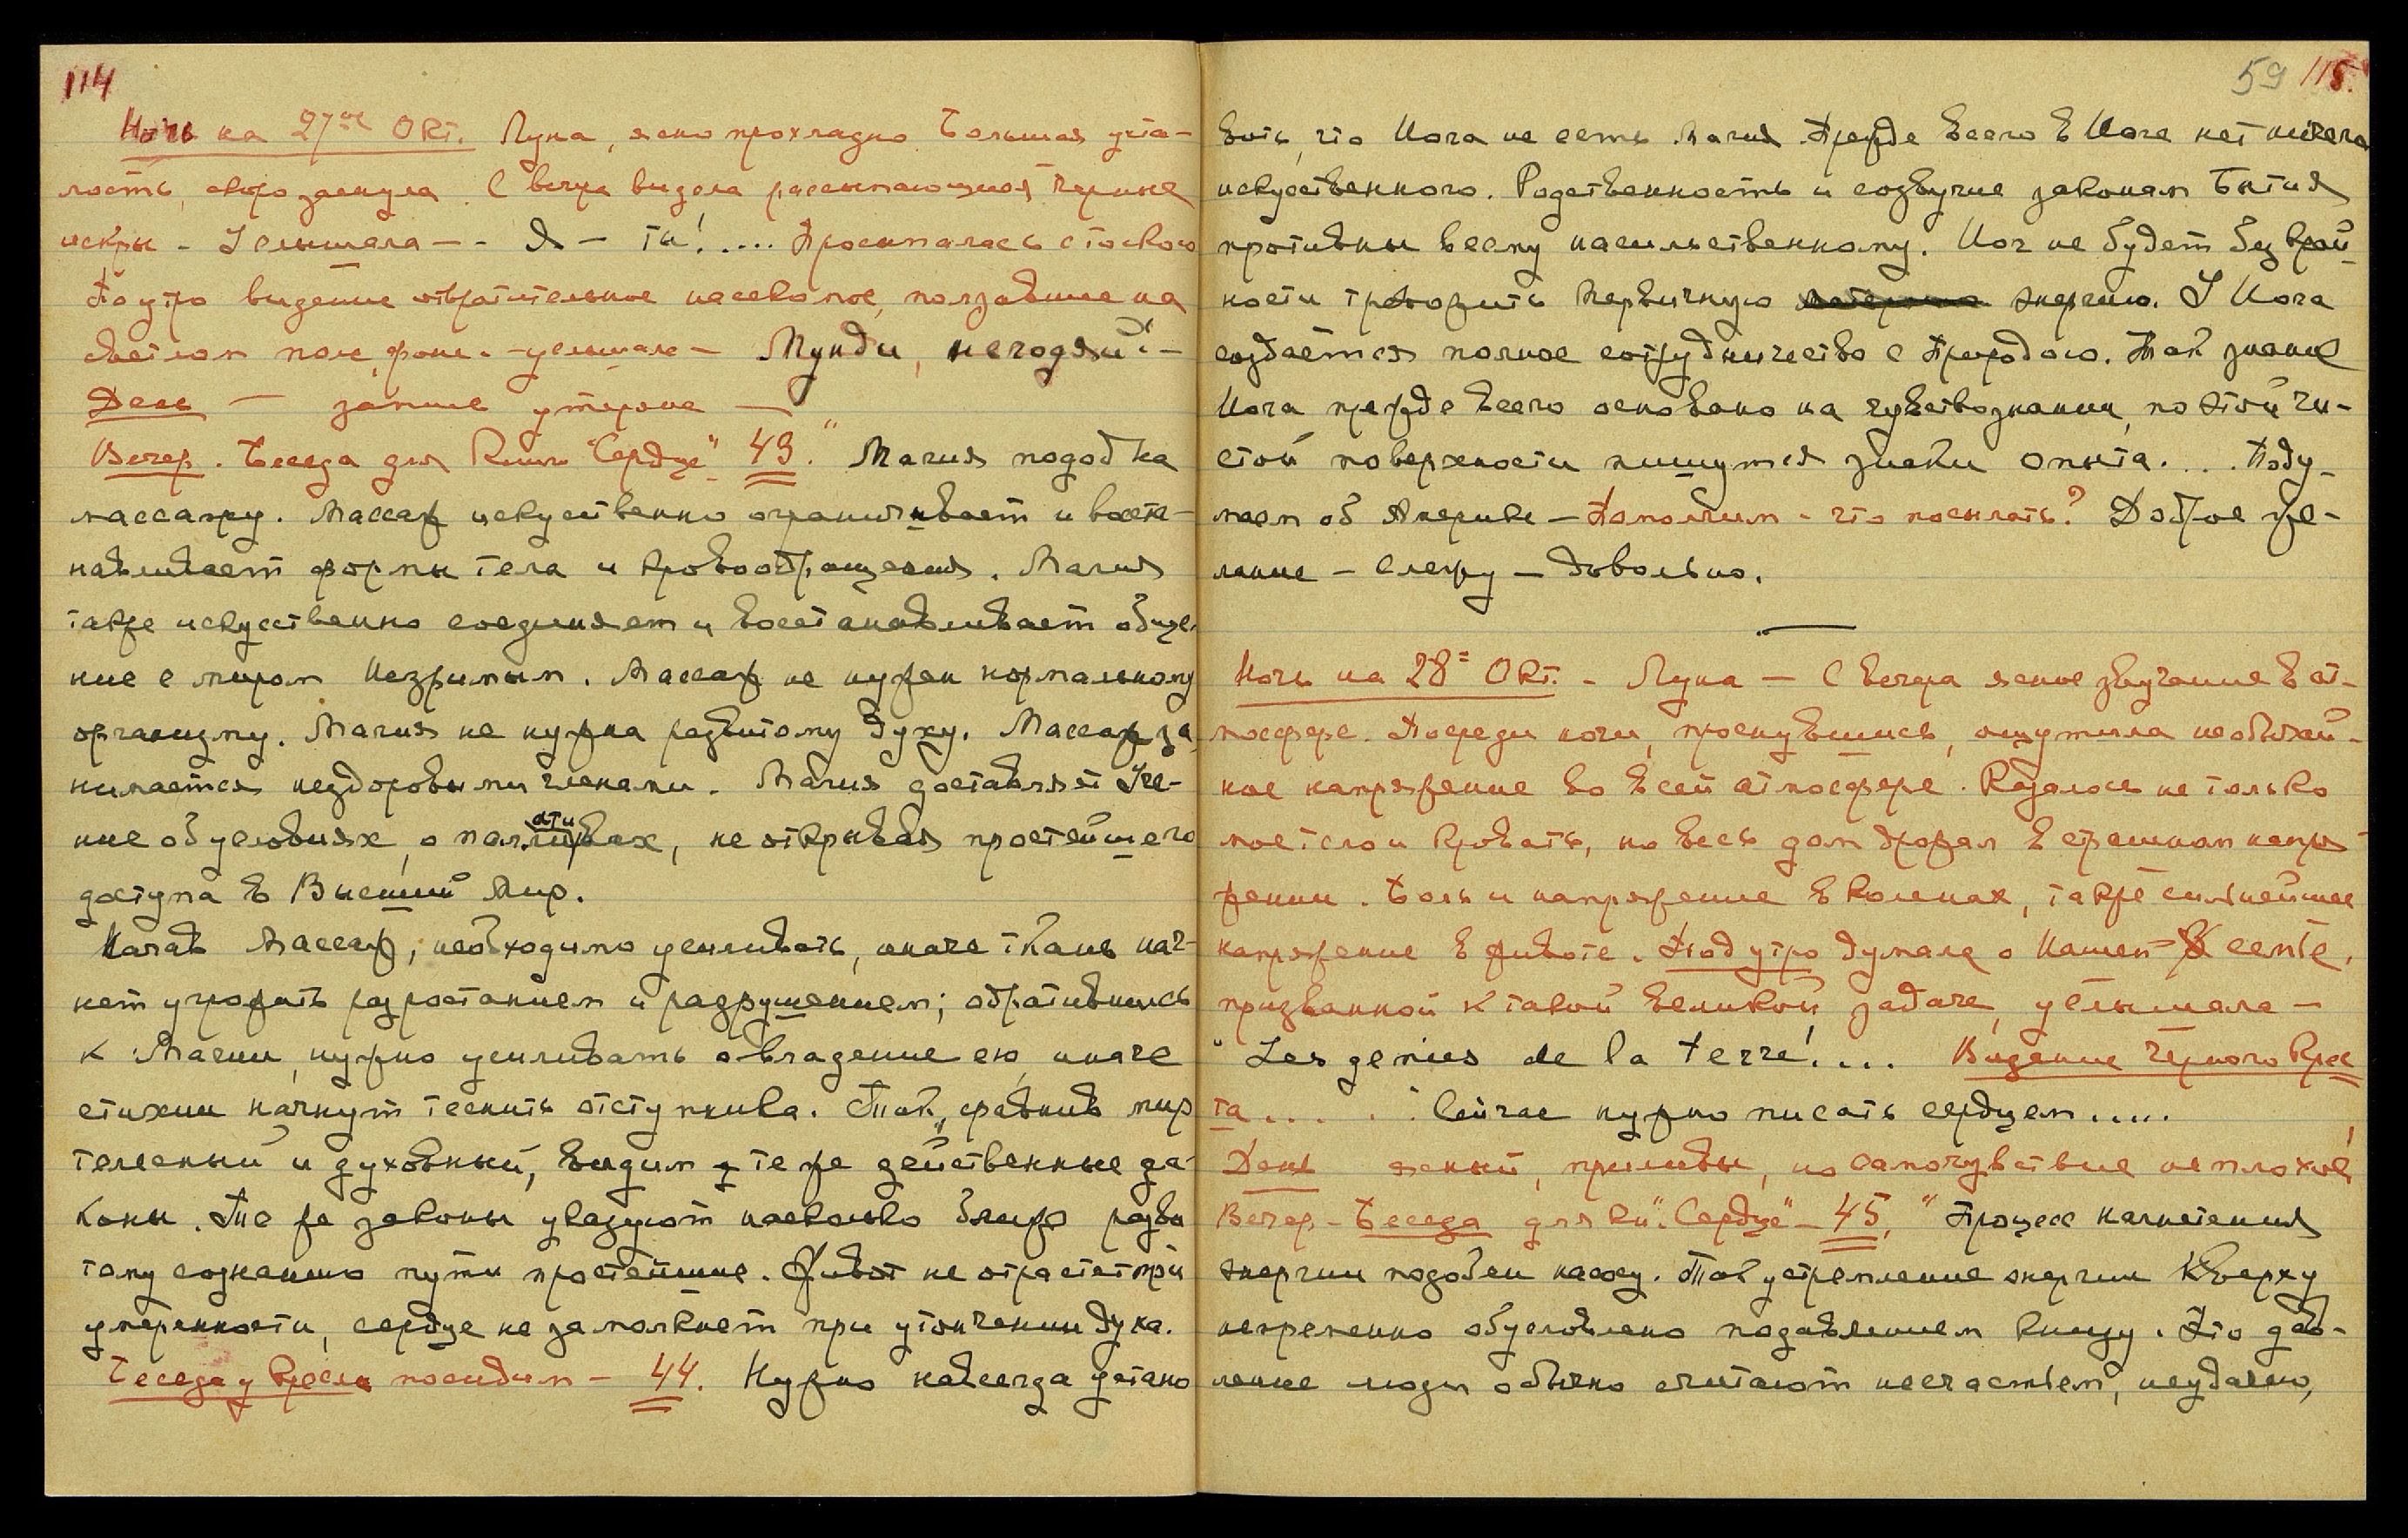 114
Ночь на 27ое Окт. Луна, ясно прохладно. Большая уста-
лость, скоро заснула. С вечера видела рассыпающиеся черные
искры - Услышала - - Я - ты!.... Просыпалась с тоскою
Под утро видение отвратительное насекомое, ползавшие на
светлом поле, фоне. - услышала - Мунди, негодяй! -
День — запись утеряна —
Вечер. Беседа для Книги "Сердце" 43. " Магия подобна
массажу. Массаж искусственно ограничивает и восста-
навливает формы тела и кровообращения. Магия
также искусственно соединяет и восстанавливает обще-
ние с миром Незримым. Массаж не нужен нормальному
организму. Магия не нужна развитому духу. Массаж за
нимается нездоровыми членами. Магия доставляет Уче-
ние об условиях, о паллиативах, не открывая простейшего
доступа в Высший Мир.
Начав массаж, необходимо усиливать, иначе ткань нач-
нет угрожать разростанием и разрушением; обратившись
к Магии, нужно усиливать овладение ею, иначе
стихии начнут теснить отступника. Так, сравнив мир
телесный и духовный, видим те же действенные за-
коны. Те же законы указуют насколько ближе разви
тому сознанию пути простейшие. Живот не отрастет при
умеренности, сердце не замолкнет при утончении духа.
Беседа у Кресла посидим - 44. Нужно навсегда устано
59 115.
вить, что Йога не есть магия. Прежде всего в Йоге нет ничего
искусственного. Родственность и созвучие законам Бытия
противны всему насильственному. Йог не будет без край-
ности тревожить первичную энергию. У Йога
создается полное сотрудничество с Природою. Так знание
Йога прежде всего основано на чувствознании, по этой чи-
стой поверхности пишутся знаки опыта.... Поду-
маем об Америке - Помолчим - что посылать? Доброе же-
лание - Слежу - довольно.
Ночь на 28= Окт. - Луна - С вечера ясное звучание в ат-
мосфере. Посреди ночи, проснувшись, ощутила необычай-
ное напряжение во всей атмосфере. Казалось не только
мое тело и кровать, но весь дом дрожал в страшном напря-
жении. Боль и напряжение в коленах, также сильнейшее
напряжение в животе. Под утро думала о Нашей семье,
призванной к такой великой задаче, услышала -
" Les genies de la terre!.... Видение Черного Крес
та.... Сейчас нужно писать сердцем.....
День ясный, приливы, но самочувствие не плохое,
Вечер - Беседа для кн. "Сердце" - 45. " Процесс нагнетения
энергии подобен насосу. Так устремление энергии кверху
непременно обусловлено подавлением книзу. Это дав-
ление люди обычно считают несчастьем, неудачею,